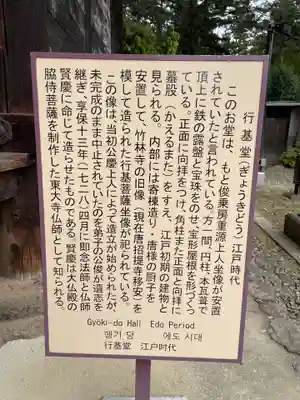 行基堂(ぎょうきどう) 江戸時代
このお堂は、もと俊乗房重源上人坐像が安置
されていたと言われている。方一間、円柱、本瓦葺で
頂上に鉄の露盤と宝珠をのせ、宝形屋根を形づくっ
ている。正面に向拝をつけ、角柱また正面と向拝に
蟇股(かえるまた)をすえ、江戸初期の建物と
見られる。内部には寄棟造り・唐様の厨子を
安置して、竹林寺の旧像(現在唐招提寺移安)を
模して造られた行基菩薩坐像が祀られている。
この像は、当初公慶上人によって造立が始められたが、
未完成のまま中止されていたのを弟子の公俊が遺志を
継ぎ、享保十三年(一七二八)四月に即念法師と仏師
賢慶に命じて造らせたものである。賢慶は大仏殿の
脇侍菩薩を制作した東大寺仏師として知られる。
Gyōki-dō Hall Edo Period
행기 당 에도 시대
行基堂 江户时代